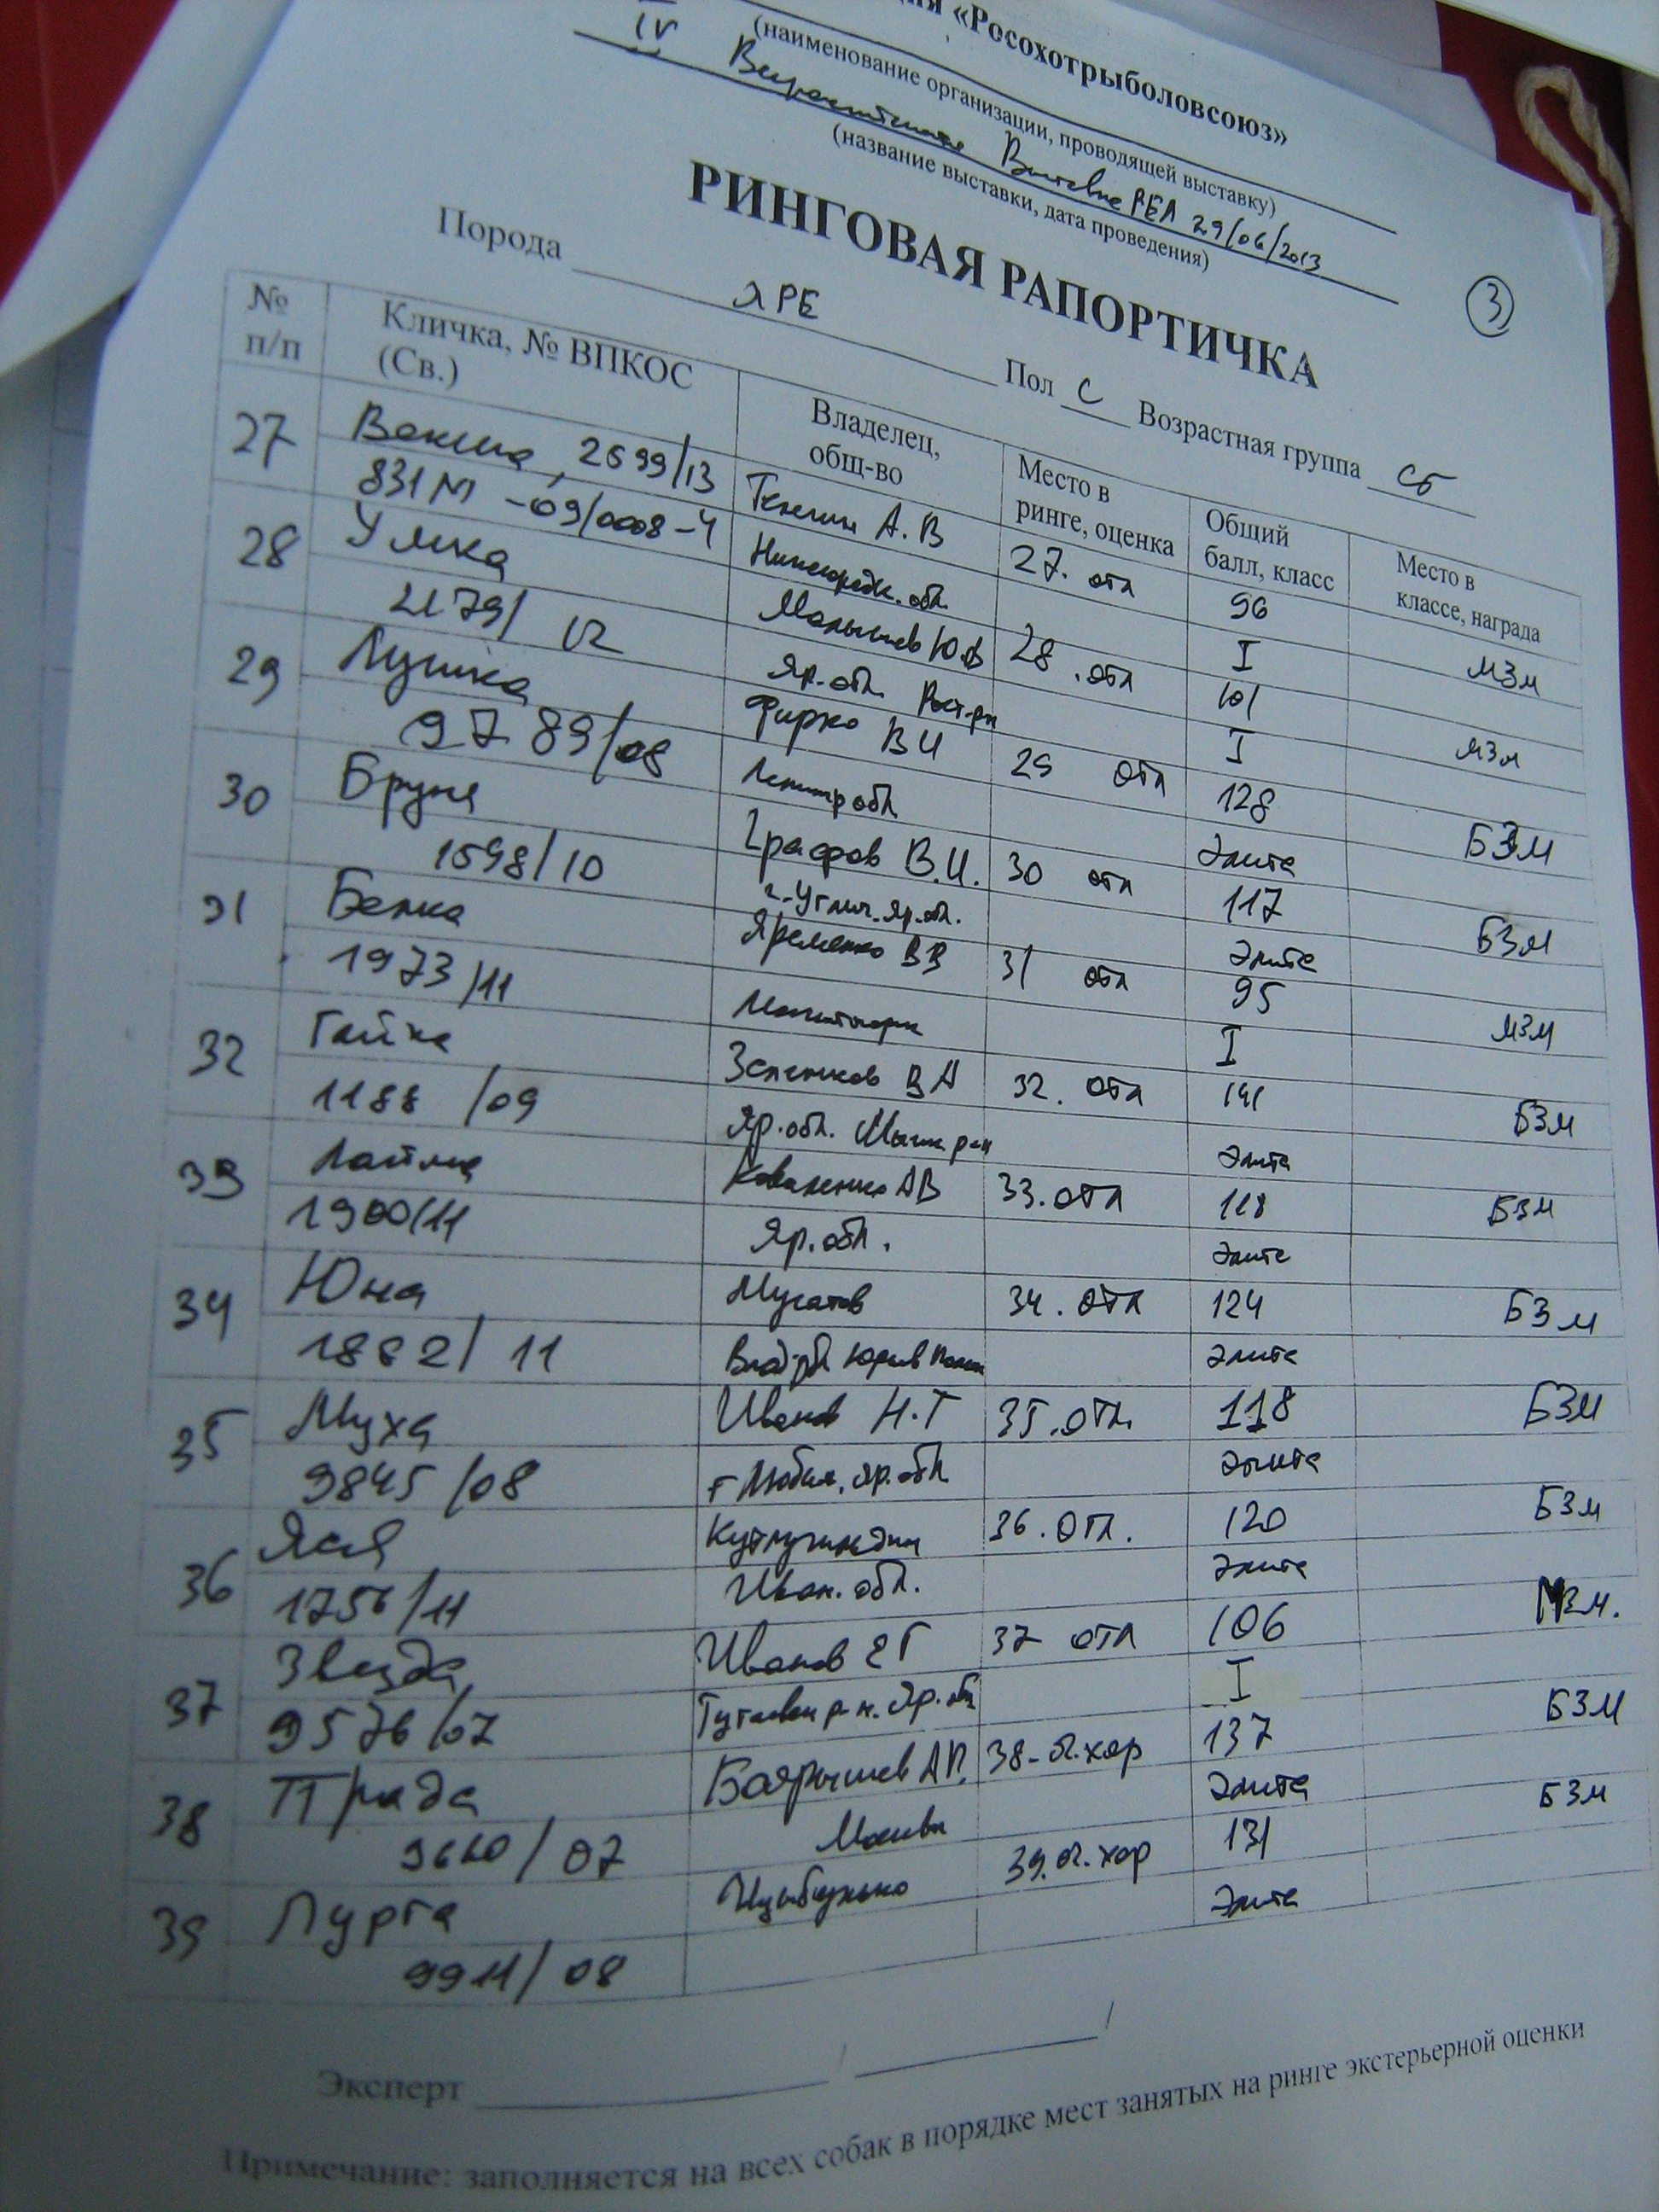 «Росохотрыболовсоюз»
(наименование организации, проводящей выставку)
IV Всероссийская Выставка РЕЛ 29/06/2013
(название выставки, дата проведения)
РИНГОВАЯ РАПОРТИЧКА
3
Порода РЕ Пол С Возрастная группа СБ
№ п/п
Кличка, № ВПКОС (Св.)
Владелец, общ-во
Место в ринге, оценка
Общий балл, класс
Место в классе, награда
27 2699/13 А.В 27. отл 96 МЗМ
831М -09/0008-4 I
28 Умка Малышев Ю.В 28. отл 101 МЗМ
2179/12 Яр.обл. I
29 Пушка Фирко ВИ 29 отл 128 БЗМ
9789/08 обл Элита
30 Бруня Графов В.И. 30 отл 117 БЗМ
1598/10 г. Углич. Яр.обл. Элита
31 Белка Яременко ВВ 31 отл 95 МЗМ
1973/11 I
32 Гайка Зеленков ВА 32. отл 141 БЗМ
1188/09 Яр.обл. Мышк р-н Элита
33 Лайма Коваленко АВ 33. отл 118 БЗМ
1900/11 Яр.обл. Элита
34 Юна 34. отл 124 БЗМ
1882/11 Элита
35 Муха Иванов Н.Г 35. отл 118 БЗМ
9845/08 г Любим. Яр.обл Элита
36 Яся 36. отл. 120 БЗМ
1756/11 Иван. обл. Элита
37 Звезда Иванов ЕГ 37 отл 106 МЗМ.
9576/07 р-н. Яр. обл I
38 Прада Боярышев АП. 38-оч.хор 137 БЗМ
07 Москва Элита
39 Пурга 39. оч.хор 131 БЗМ
9911/08 Элита
Эксперт / /
Примечание: заполняется на всех собак в порядке мест занятых на ринге экстерьерной оценки